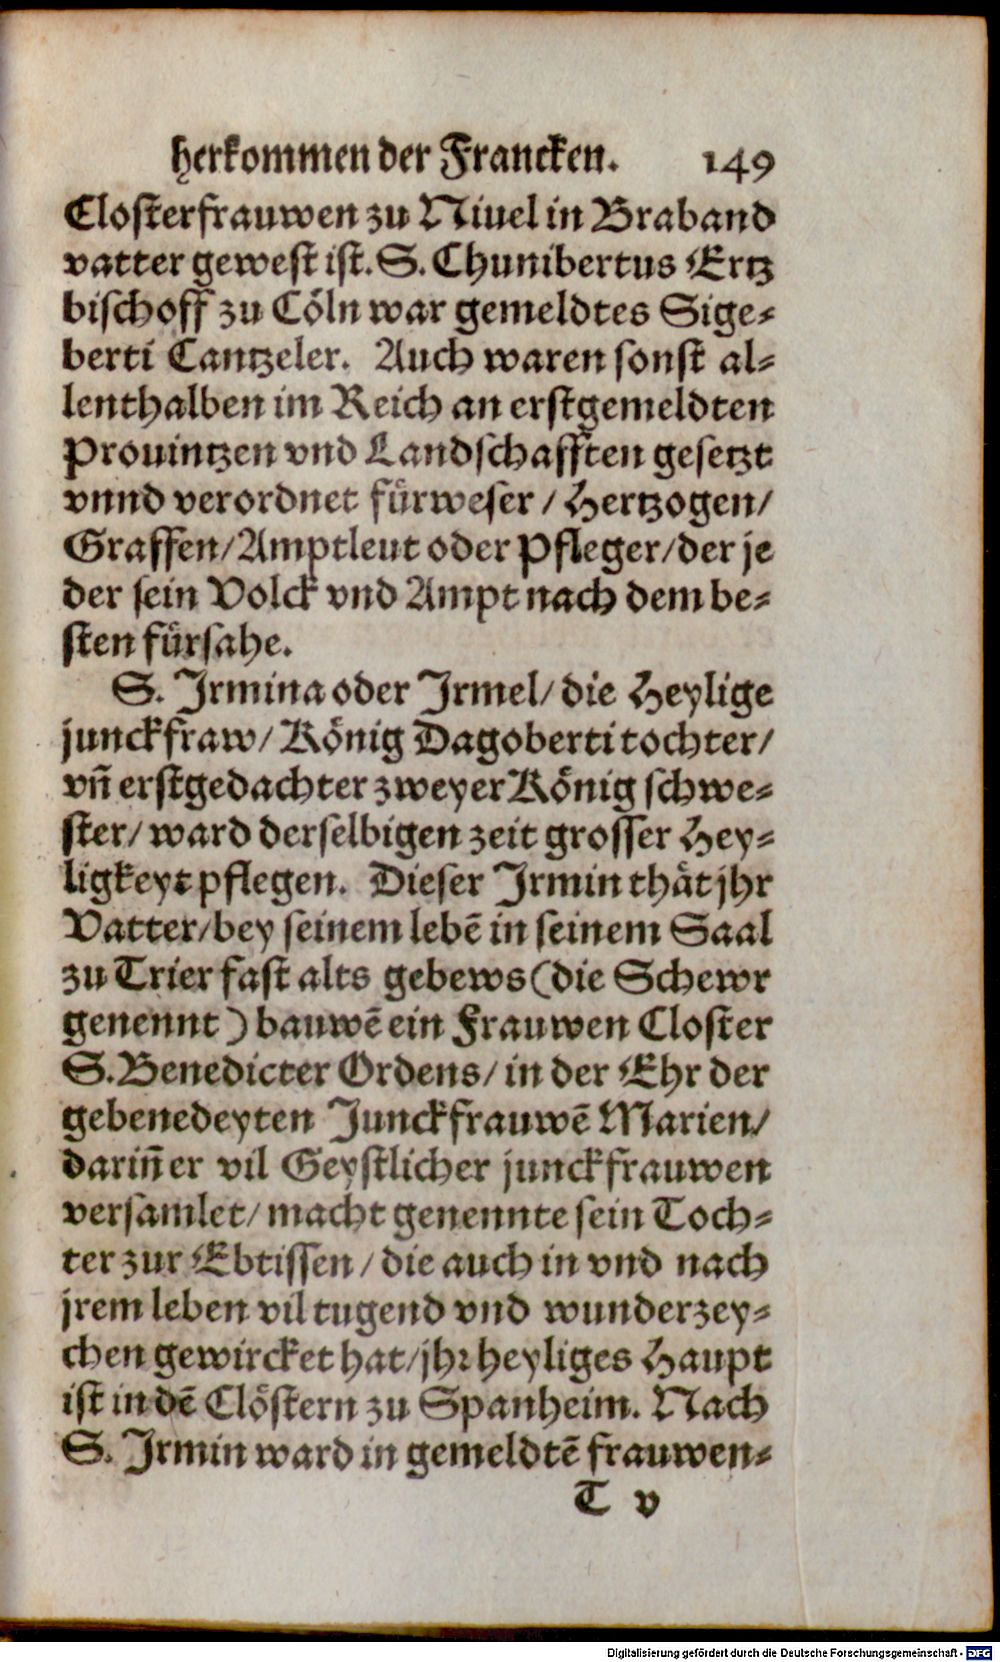 herkommen der Francken. 149
Closterfrauwen zu Niuel in Braband
vatter gewest ist. S. Chunibertus Ertz
bischoff zu Cöln war gemeldtes Sige-
berti Cantzeler. Auch waren sonst al-
lenthalben im Reich an erstgemeldten
Prouintzen vnd Landschafften gesetzt
vnnd verordnet fürweser / Hertzogen /
Graffen / Amptleut oder Pfleger / der je
der sein Volck vnd Ampt nach dem be-
sten fürsahe.
S. Jrmina oder Jrmel / die Heylige
junckfraw / König Dagoberti tochter /
vñ erstgedachter zweyer König schwe-
ster / ward derselbigen zeit grosser Hey-
ligkeyt pflegen. Dieser Jrmin thät jhr
Vatter / bey seinem lebẽ in seinem Saal
zu Trier fast alts gebews (die Schewr
genennt) bauwẽ ein Frauwen Closter
S. Benedicter Ordens / in der Ehr der
gebenedeyten Junckfrauwẽ Marien /
dariñ er vil Geystlicher junckfrauwen
versamlet / macht genennte sein Toch-
ter zur Ebtissen / die auch in vnd nach
jrem leben vil tugend vnd wunderzey-
chen gewircket hat / jhr heyliges Haupt
ist in dẽ Clöstern zu Spanheim. Nach
S. Jrmin ward in gemeldtẽ frauwen-
T v
Digitalisierung gefördert durch die Deutsche Forschungsgemeinschaft - DFG